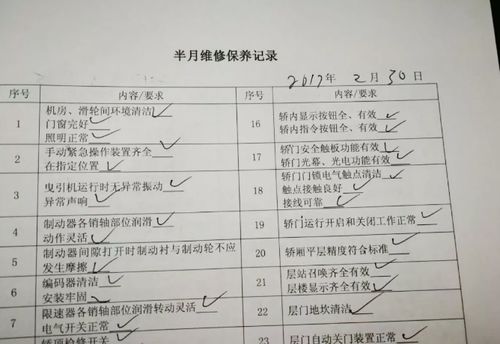 半月维修保养记录
2017年 2月 30日
序号 内容/要求 序号 内容/要求
1 机房、滑轮间环境清洁✓
门窗完好✓
照明正常✓
2 手动紧急操作装置齐全✓
在指定位置✓
3 曳引机运行时无异常振动✓
异常声响✓
4 制动器各销轴部位润滑✓
动作灵活✓
5 制动器间隙打开时制动衬与制动轮不应
发生摩擦✓
6 编码器清洁✓
安装牢固✓
7 限速器各销轴部位润滑转动灵活✓
电气开关正常✓
轿顶检修开关
16 轿内显示按钮全、有效✓
轿内指令按钮全、有效✓
17 轿门安全触板功能有效✓
轿门光幕、光电功能有效✓
18 轿门门锁电气触点清洁✓
触点接触良好✓
接线可靠✓
19 轿门运行开启和关闭工作正常✓
20 轿厢平层精度符合标准✓
21 层站召唤齐全有效✓
层楼显示齐全有效✓
22 层门地坎清洁✓
23 层门自动关门装置正常✓